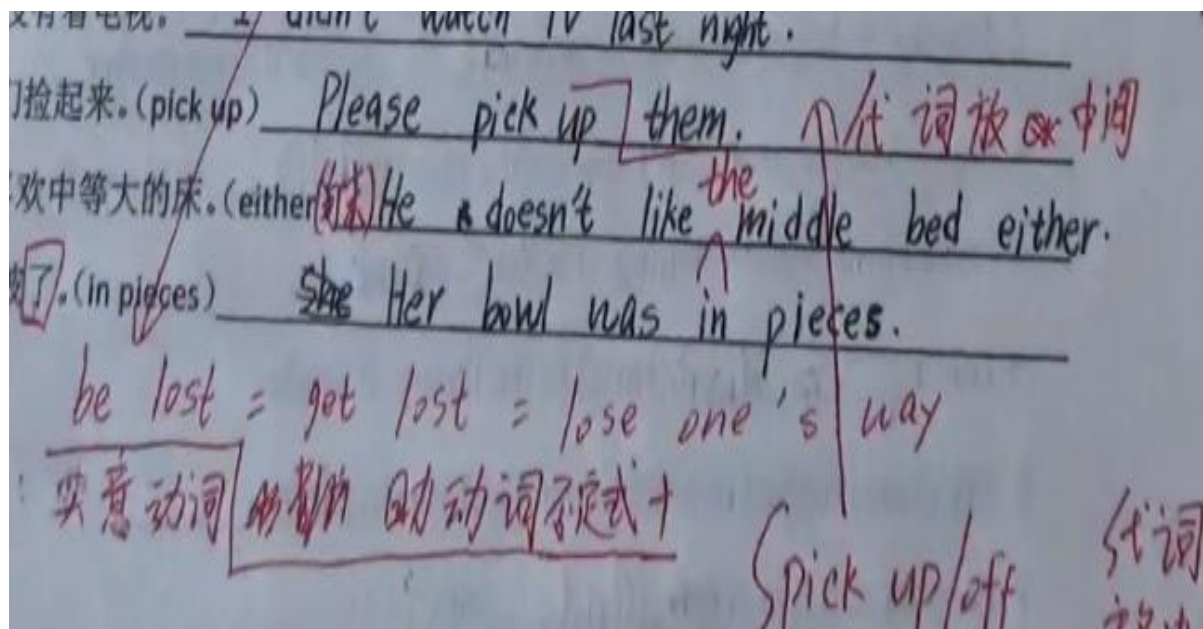 没有看电视。 I didn't watch TV last night.
们捡起来。(pick up) Please pick up them. 代词放中间
欢中等大的床。(either 句末) He doesn't like the middle bed either.
了。(in pieces) She Her bowl was in pieces.
be lost = get lost = lose one's way
实意动词 助动词否定式+
pick up/off 代词